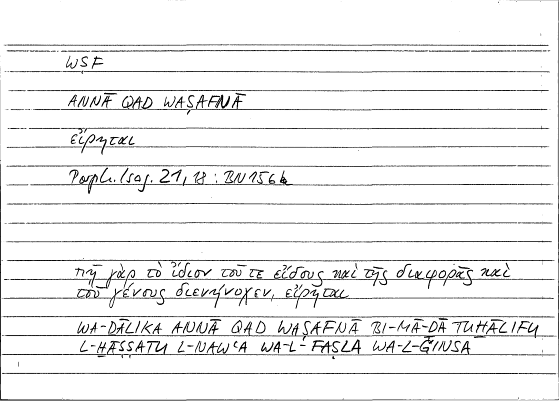 WṢF
ANNĀ QAD WAṢAFNĀ
εἴρηται
Porph. Isag. 21, 18 : BN 156b
πῇ γὰρ τὸ ἴδιον τοῦ τε εἴδους καὶ τῆς διαφορᾶς καὶ
τοῦ γένους διενήνοχεν, εἴρηται
WA-ḎĀLIKA ANNĀ QAD WAṢAFNĀ BI-MĀ-ḎĀ TUḪĀLIFU
L-ḪĀṢṢATU L-NAWʿA WA-L-FAṢLA WA-L-ǦINSA